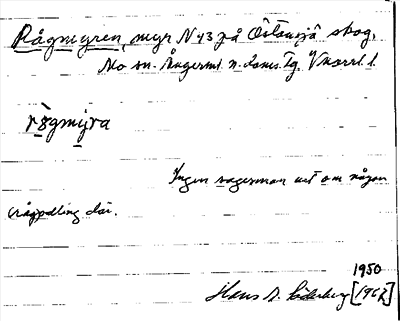 Rågmyren, myr N 43 på Östansjö skog,
Mo sn. Ångerml. n. doms. tg. Vnorrl. l.
rògmy̆ra
Ingen sagesman vet om någon
rågodling där.
1950
Hans B. Söderberg [1962]